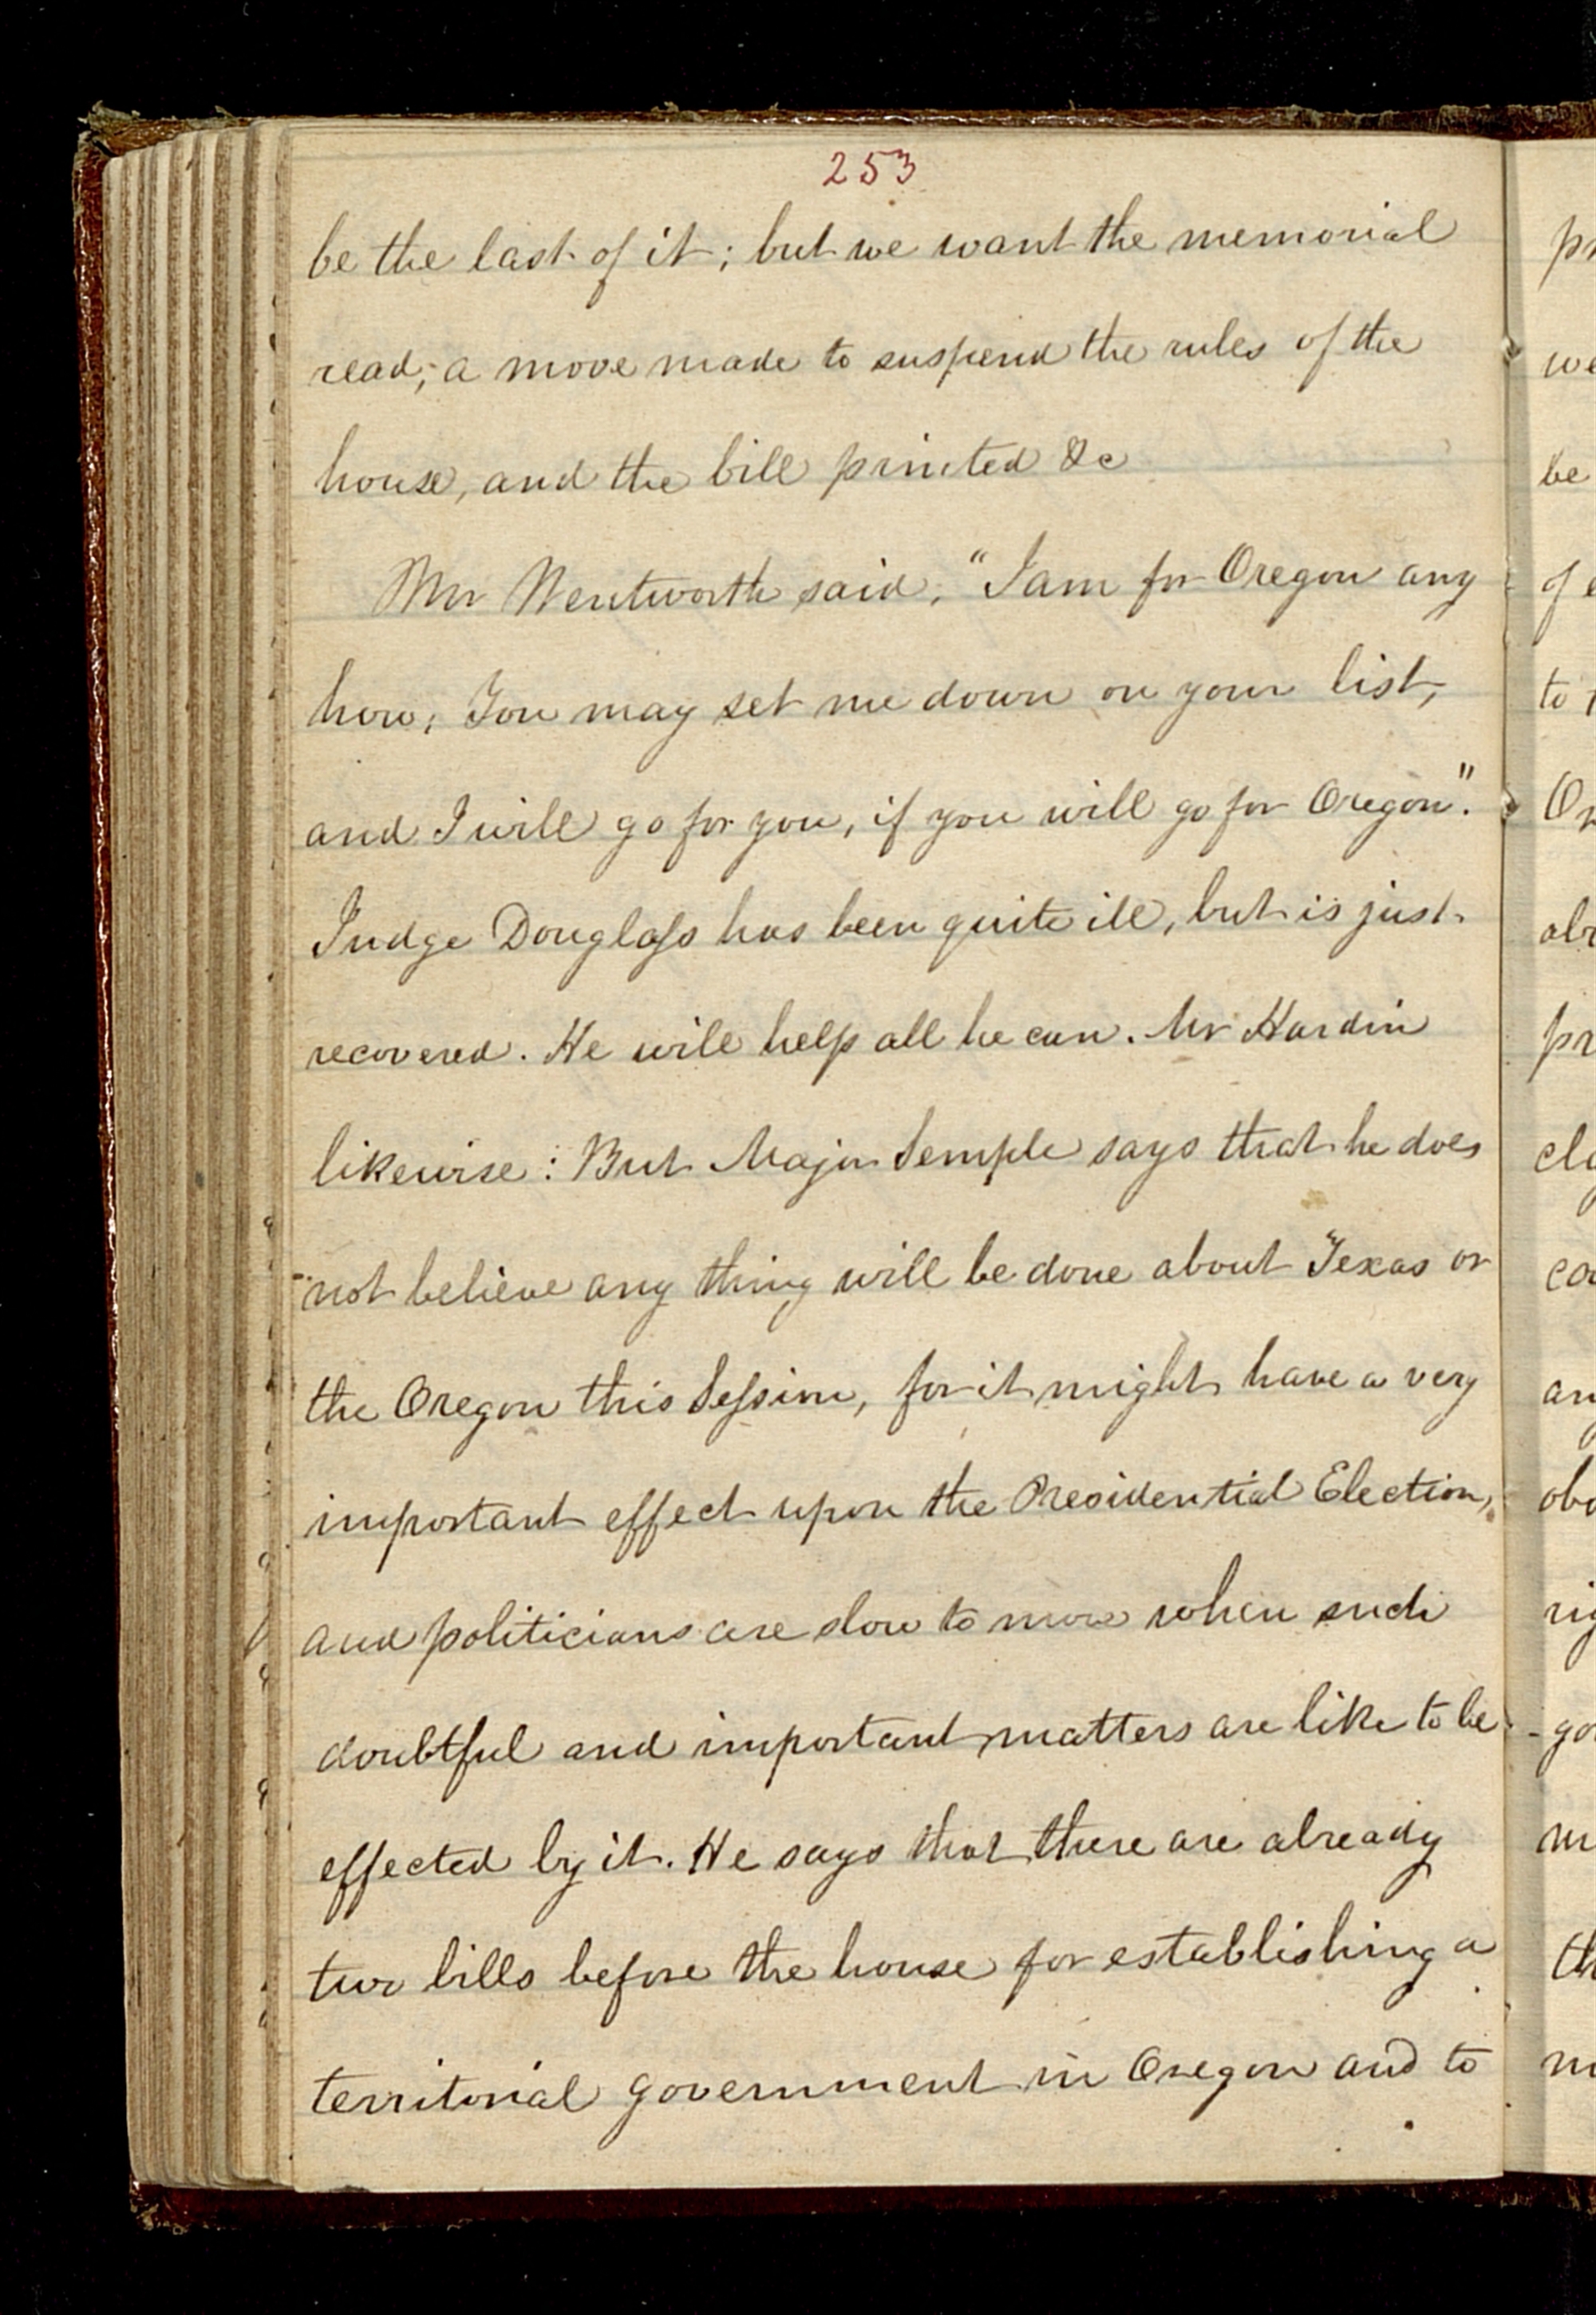 253
be the last of it; but we want the memorial
read; a move made to suspend the rules of the
house, and the bill printed &c
Mr Wentworth said, "I am for Oregon any
how; You may set me down on your list,
and I will go for you, if you will go for Oregon".
Judge Douglass has been quite ill, but is just
recovered. He will help all he can. Mr Hardin
likewise: But Major Semple says that he does
not believe any thing will be done about Texas or
the Oregon this Session, for it might have a very
important effect upon the Presidential Election,
and politicians are slow to move when such
doubtful and important matters are like to be
effected by it. He says that there are already
two bills before the house for establishing a
territorial government in Oregon and to